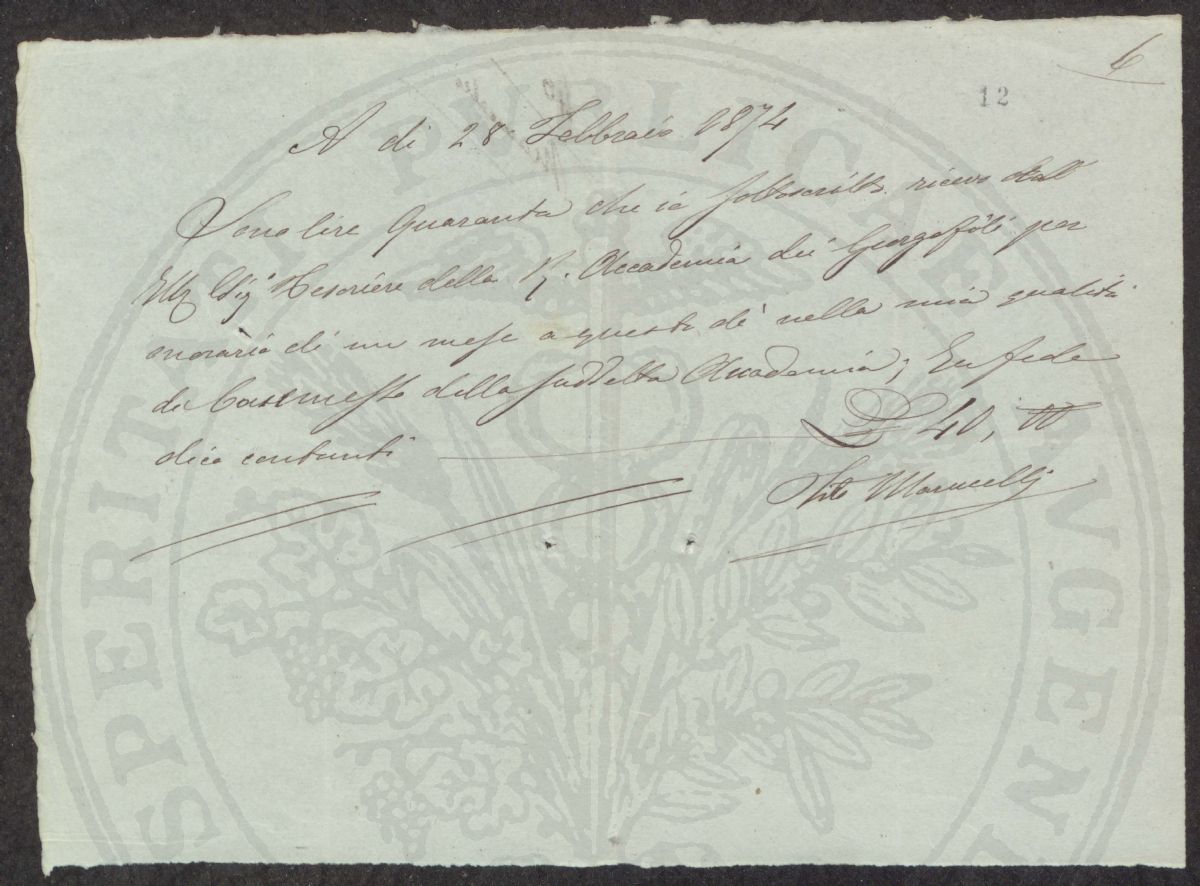 6
12
A di 28 Febbraio 1874
Sono lire Quaranta che io sottoscritto ricevo dall
Sig Tesoriere della R. Accademia dei Georgofili per
onorario di un mese a questo dì nella mia qualità
di Commesso della suddetta Accademia; En fede
dico contanti £ 40, 00
Marucelli
PROSPERITATI PUBLICAE AVGENDAE